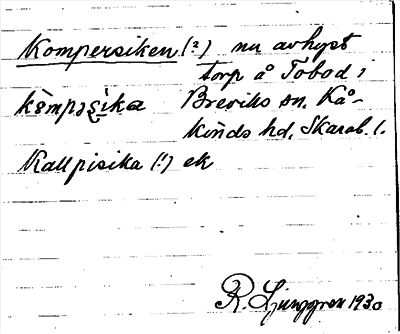 Kompersiken (?) nu avhyst
torp å Tobod i
Breviks sn. Kå-
kinds hd, Skarab. l.
Kallpisika (!) ek
R. Ljunggren 1930